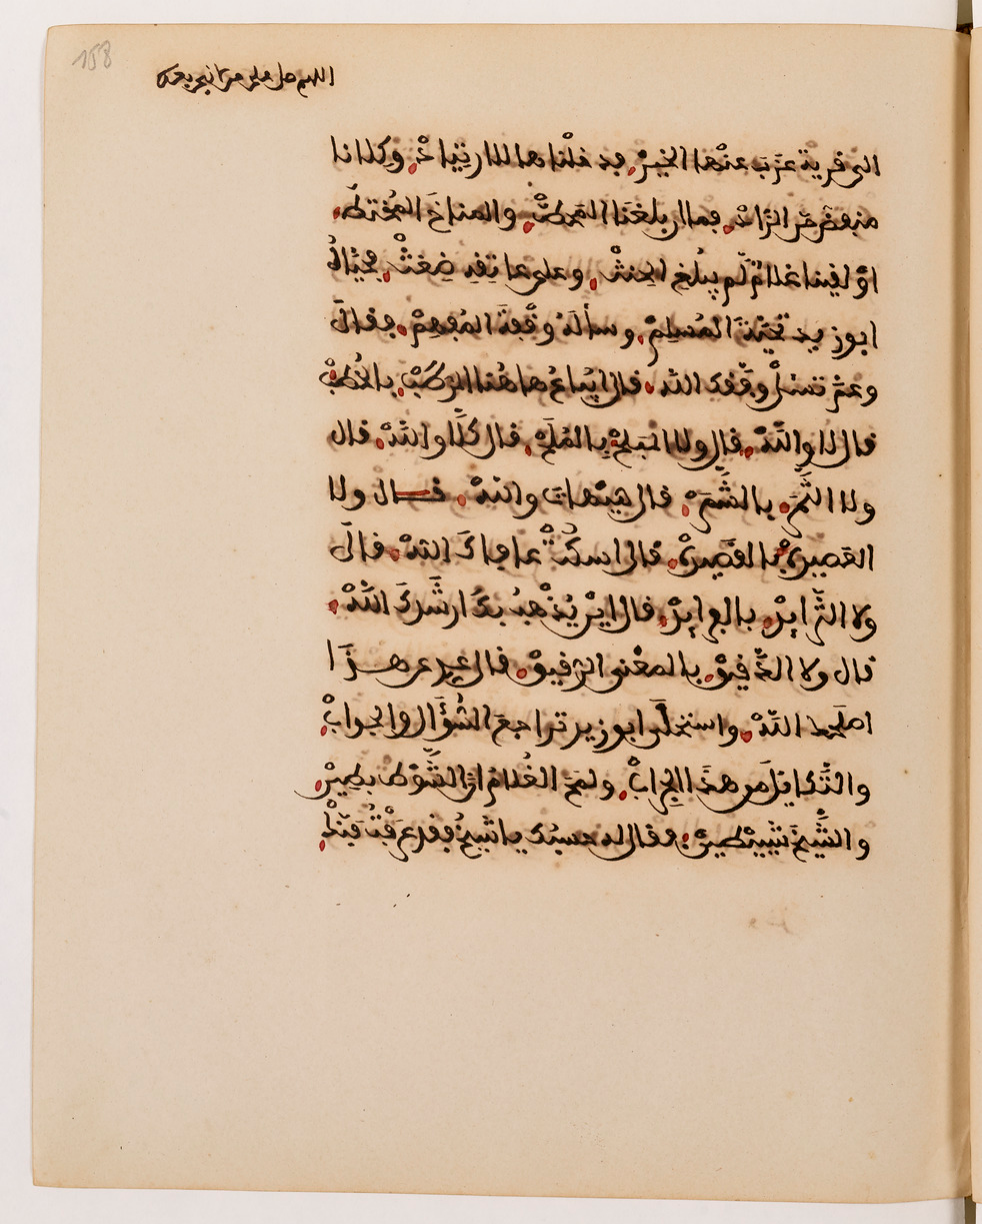 158
اللهم صل على من لا نبي بعده
الى قرية عزب عنها الخير، فدخلناها للارتياد، وكلانا
منفض من الزاد، فما ان بلغنا المحط، والمناخ المختط،
او لقينا غلام لم يبلغ الحنث، وعلى عاتقه ضغث، فحياه
ابو زيد تحية المسلم، وسأله وقفة المفهم، فقال
وعم تسئل وفقك الله، قال ايباع هاهنا الرطب، بالخطب
قال لا والله، قال ولا البلح بالملح، قال كلا والله، قال
ولا الثمر، بالسمر، قال هيهات والله، قال ولا
العصيدة بالقصيدة، قال اسكت عافاك الله، قال
ولا الثرايد، بالفرايد، قال اين يذهب بك ارشدك الله،
قال ولا الدقيق، بالمعنى الرقيق، قال عد عن هذا
اصلحك الله، واستحلى ابو زيد تراجع السؤال والجواب،
والتكايل من هذا الجراب، ولمح الغلام ان الشوط بطين،
والشيخ شييطين، فقال له حسبك يا شيخ فقد عرفت فنك،